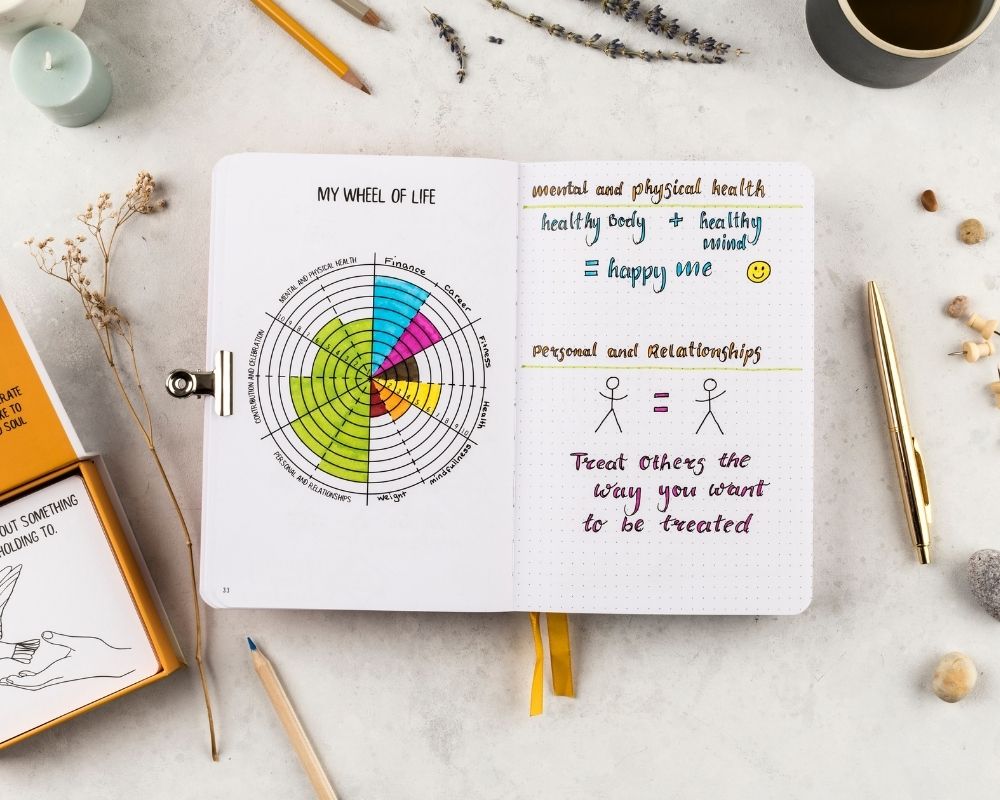 MY WHEEL OF LIFE
MENTAL AND PHYSICAL HEALTH
Finance
Career
Fitness
Health
mindfullness
weight
PERSONAL AND RELATIONSHIPS
CONTRIBUTION AND CELEBRATION
33
mental and physical health
healthy Body + healthy
mind
= happy me
Personal and Relationships
=
Treat others the
way you want
to be treated
TO
SOUL
OUT SOMETHING
HOLDING TO.